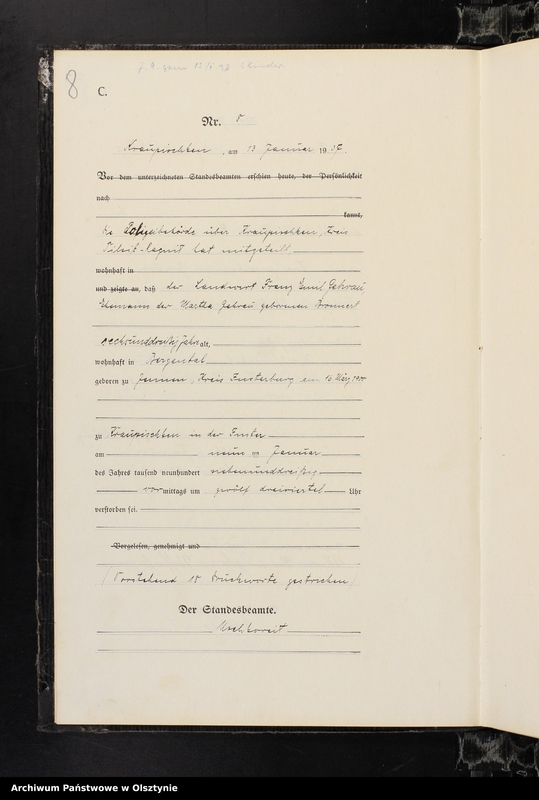 8
C.
Nr. 5
Kraupischken, am 13 Januar 1937.
Vor dem unterzeichneten Standesbeamten erschien heute, der Persönlichkeit
nach
kannt,
Die Polizeibehörde über Kraupischken, Kreis
Tilsit-Ragnit hat mitgeteilt,
wohnhaft in
und zeigte an, daß der Landwirt Franz Emil Gehrau
Ehemann der Martha Gehrau geborenen
sechsunddreißig Jahre alt,
wohnhaft in Bergental
geboren zu Jennen, Kreis Insterburg am 16 März 1900
zu Kraupischken in der Inster
am neun ten Januar
des Jahres tausend neunhundert siebenunddreißig
vormittags um zwölf dreiviertel Uhr
verstorben sei.
Vorgelesen, genehmigt und
(Vorstehend 15 Druckworte gestrichen)
Der Standesbeamte.
Archiwum Państwowe w Olsztynie